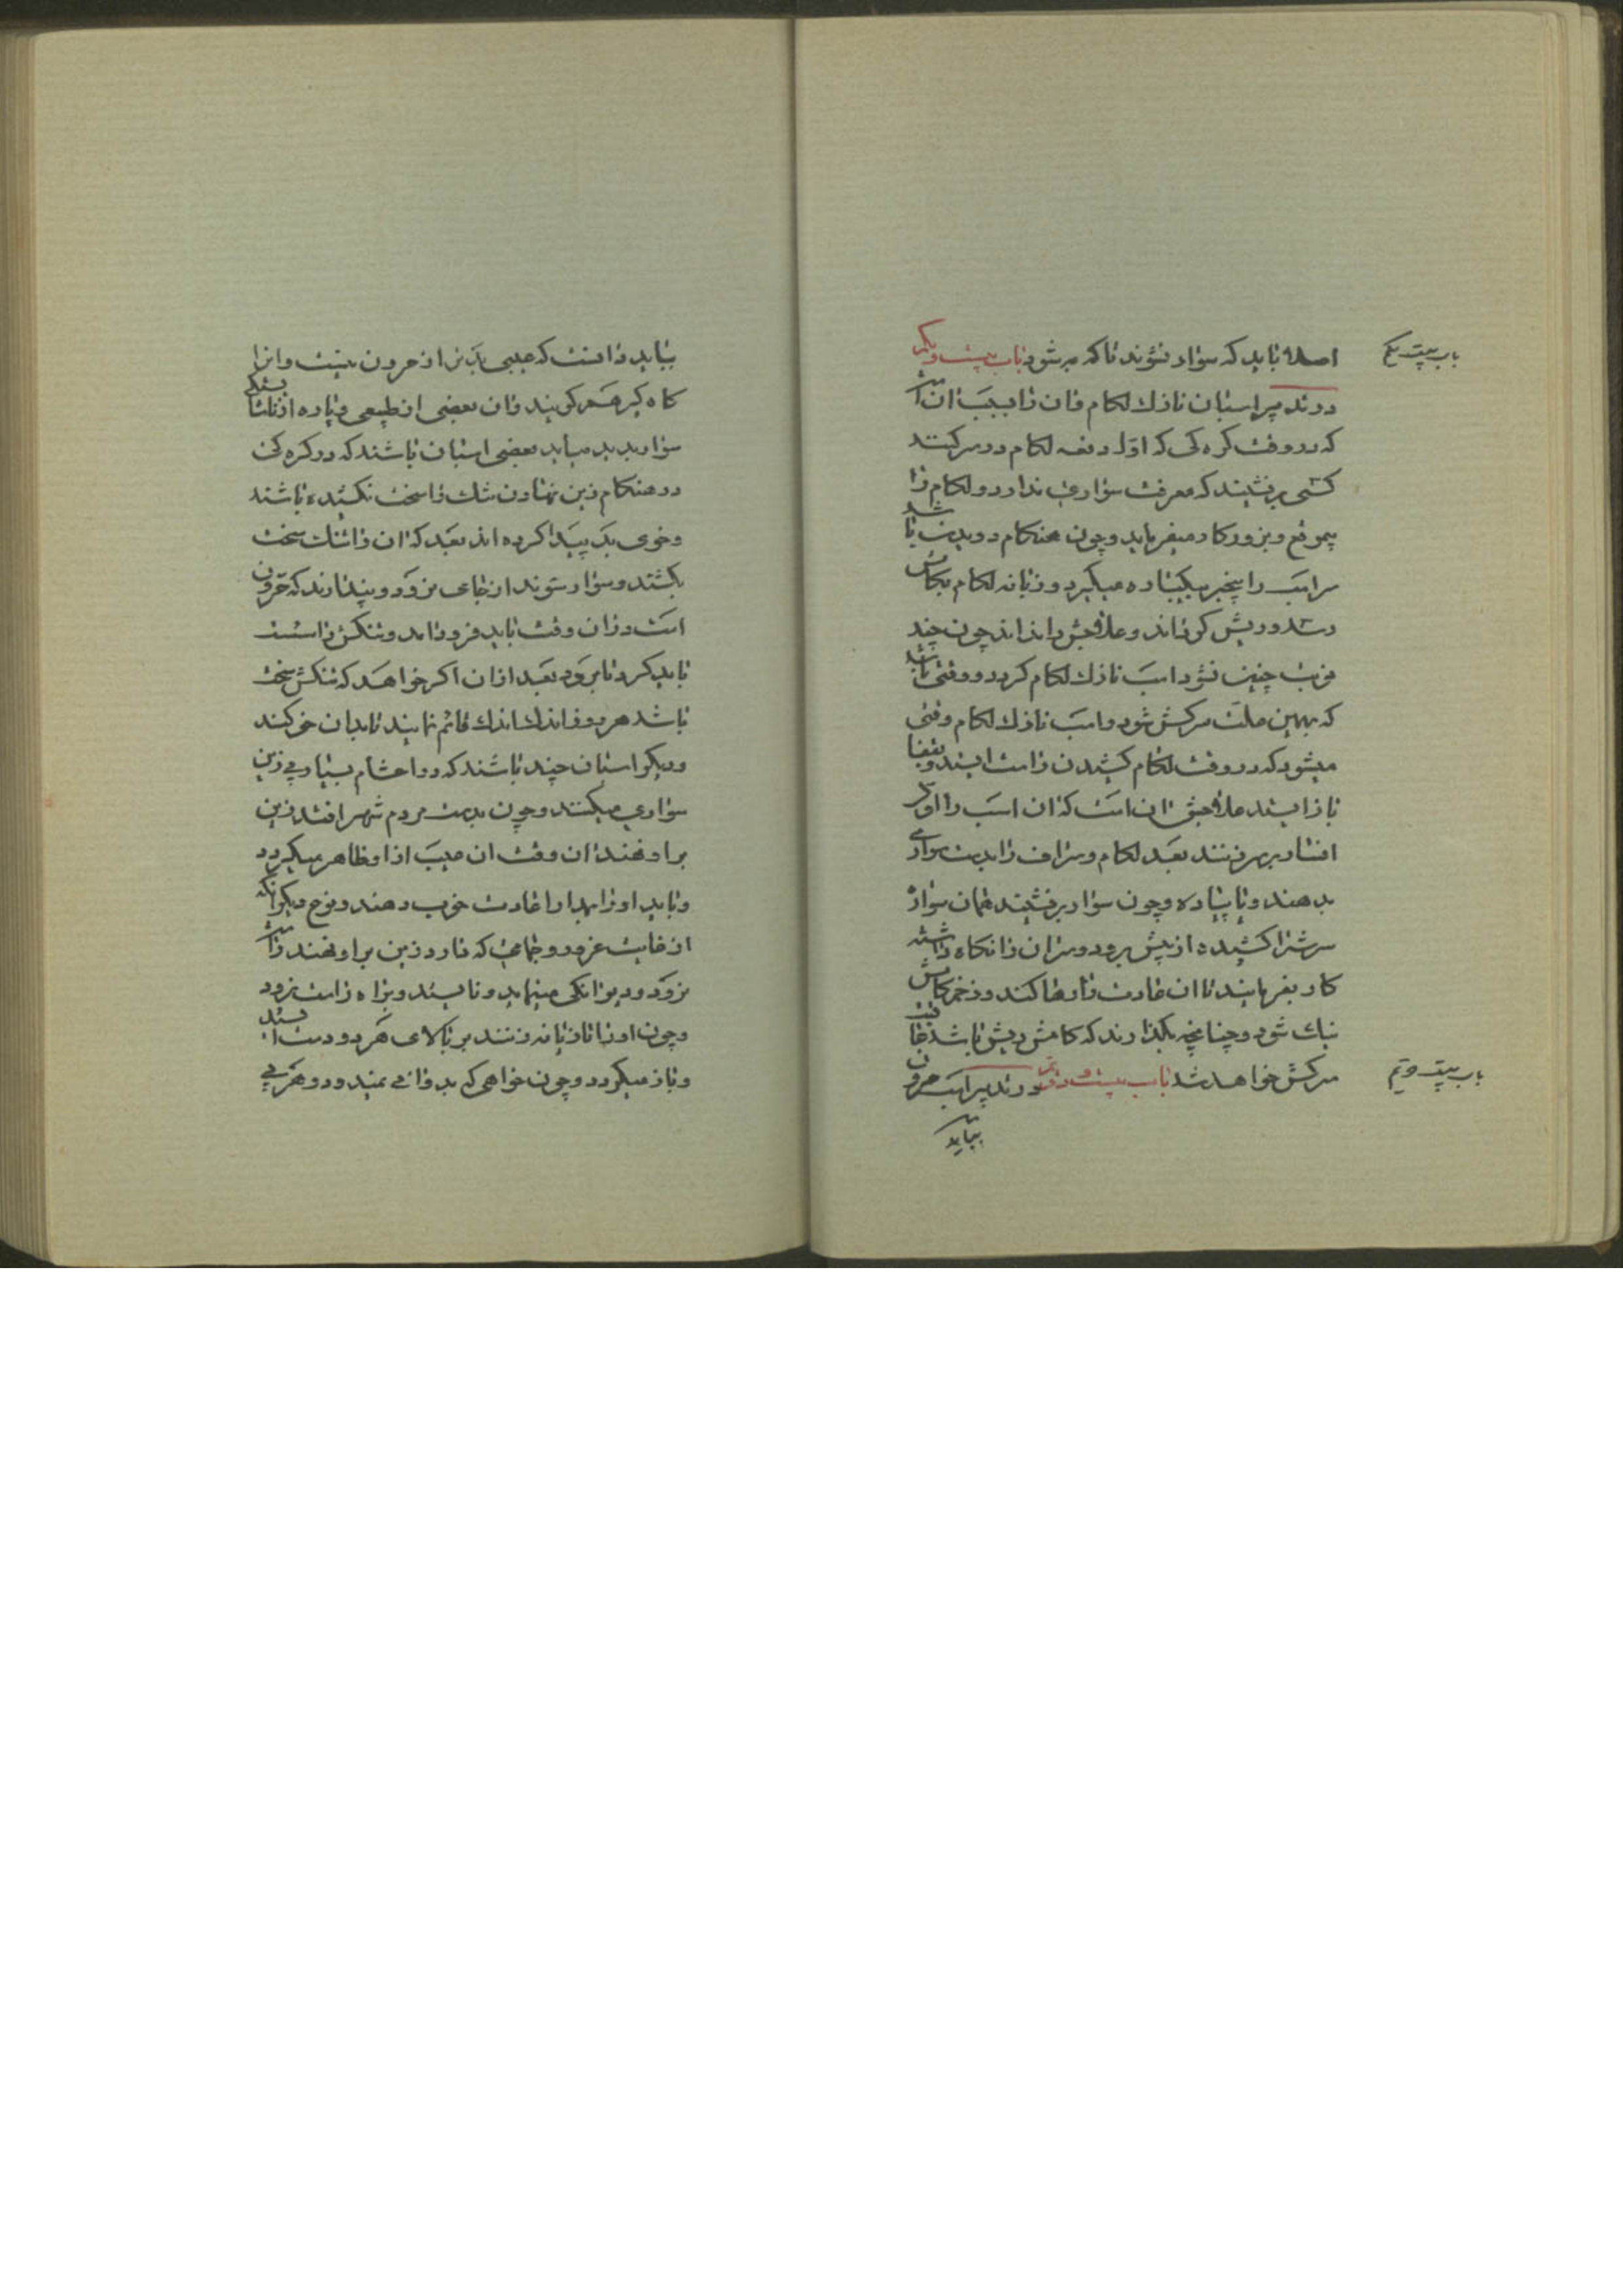 باب بیست یکم
اصلا باید که سوار نشوند تا که به شود باب بیست و یکم
در تدبیر اسبان نازک لکام و ان را سبب ان است
که در وقت کره کی که اول دفعه لکام در سر کنند
کسی بر نشیند که معرفت سواری ندارد و لکام را
بیموقع و بزور کار میفرماید و چون هنکام دویدن باشد
سر اسب را بیخبر بیکباره میکیرد و زبانه لکام بکامش
رسد و ریش کرداند و علاجش ندانند چون چند
نوبت چنین شود اسب نازک لکام کردد و وقتی باشد
که بهمین علت سرکش شود و اسب نازک لکام وقتی
میشود که در وقت لکام کشیدن راست ایستد و بقفا
باز ایستد علاجش ان است که ان اسب را اول
افسار بر سر زنند بعد لکام و سر اف را بدست سواری
بدهند و یا پیاده و چون سوار بر نشیند همان سواره
سرش را کشیده از پیش برود و سر ان را نکاه داشته
کار بفرمایند تا ان عادت را رها کند و زخم کامش
نیک شود و چنانچه بکذارند که کامش ریش باشد عاقبت
سرکش خواهد شد باب بیست و دویم در تدبیر اسب حرون
باب بیست و دویم
بباید
بباید دانست که عیبی بدتر از حرون نیست و انرا
کاه کیر هم کویند و ان بعضی از طبیعی و پاره از ناشناسی
سوار پدید میاید بعضی اسبان باشند که در کره کی
در هنکام زین نهادن تنک را سخت نکشیده باشند
و خوی بد پیدا کرده اند بعد که ان را تنک سخت
بکشند و سوار شوند از جای نرود و پندارند که حرون
است در ان وقت باید فرود امد و تنکش را سست
باید کرد تا برود بعد از ان اکر خواهد که تنکش سخت
باشد هر روز اندک اندک قائم نمایند تا بدان خو کند
و دیکر اسبان چند باشند که در احشام بسیار بی زین
سواری میکنند و چون بدست مردم شهر افتد زین
بر او نهند ان وقت ان عیب از او ظاهر میکردد
و باید او را بمدارا عادت خوب دهند و نوع دیکر انکه
از غایت غرور و خامی که دارد زین بر او نهند راست
نرود و دیوانکی مینماید و نایستد و براه راست نرود
و چون او را تازیانه زنند بر بالای هر دو دست ایستد
و باز میکردد و چون خواهی که بدوانی نمیدود و هر پی